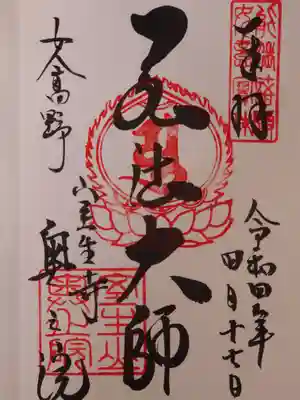 奉拝
令和四年
四月十七日
弘法大師
女人高野
室生寺
奥之院